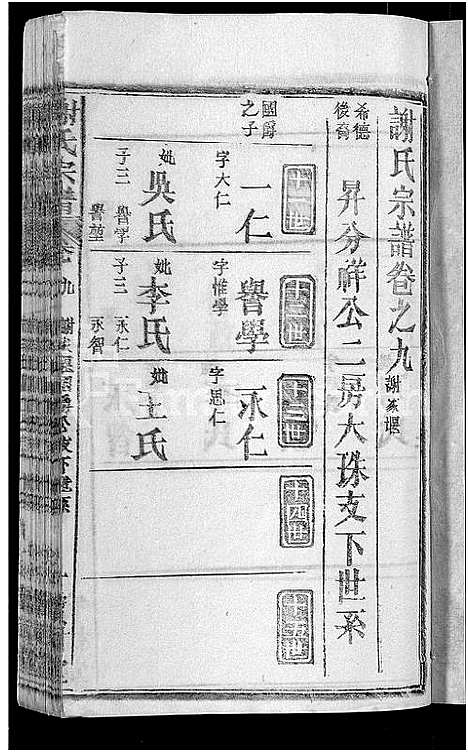 謝氏宗譜卷之九 謝家堰
希德後裔
昇分祥公二房大珠支下世系
十一世
國爵之子
一仁
字大仁
妣吳氏
子二 譽學 譽堇
十二世
譽學
字惟學
妣李氏
子二 永仁 永智
十三世
永仁
字思仁
妣王氏
十四世
十五世
謝氏宗譜 卷之九